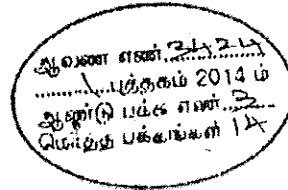 ஆவண எண் 3424
1 புத்தகம் 2014 ம்
ஆண்டு பக்க எண் 2
மொத்த பக்கங்கள் 14